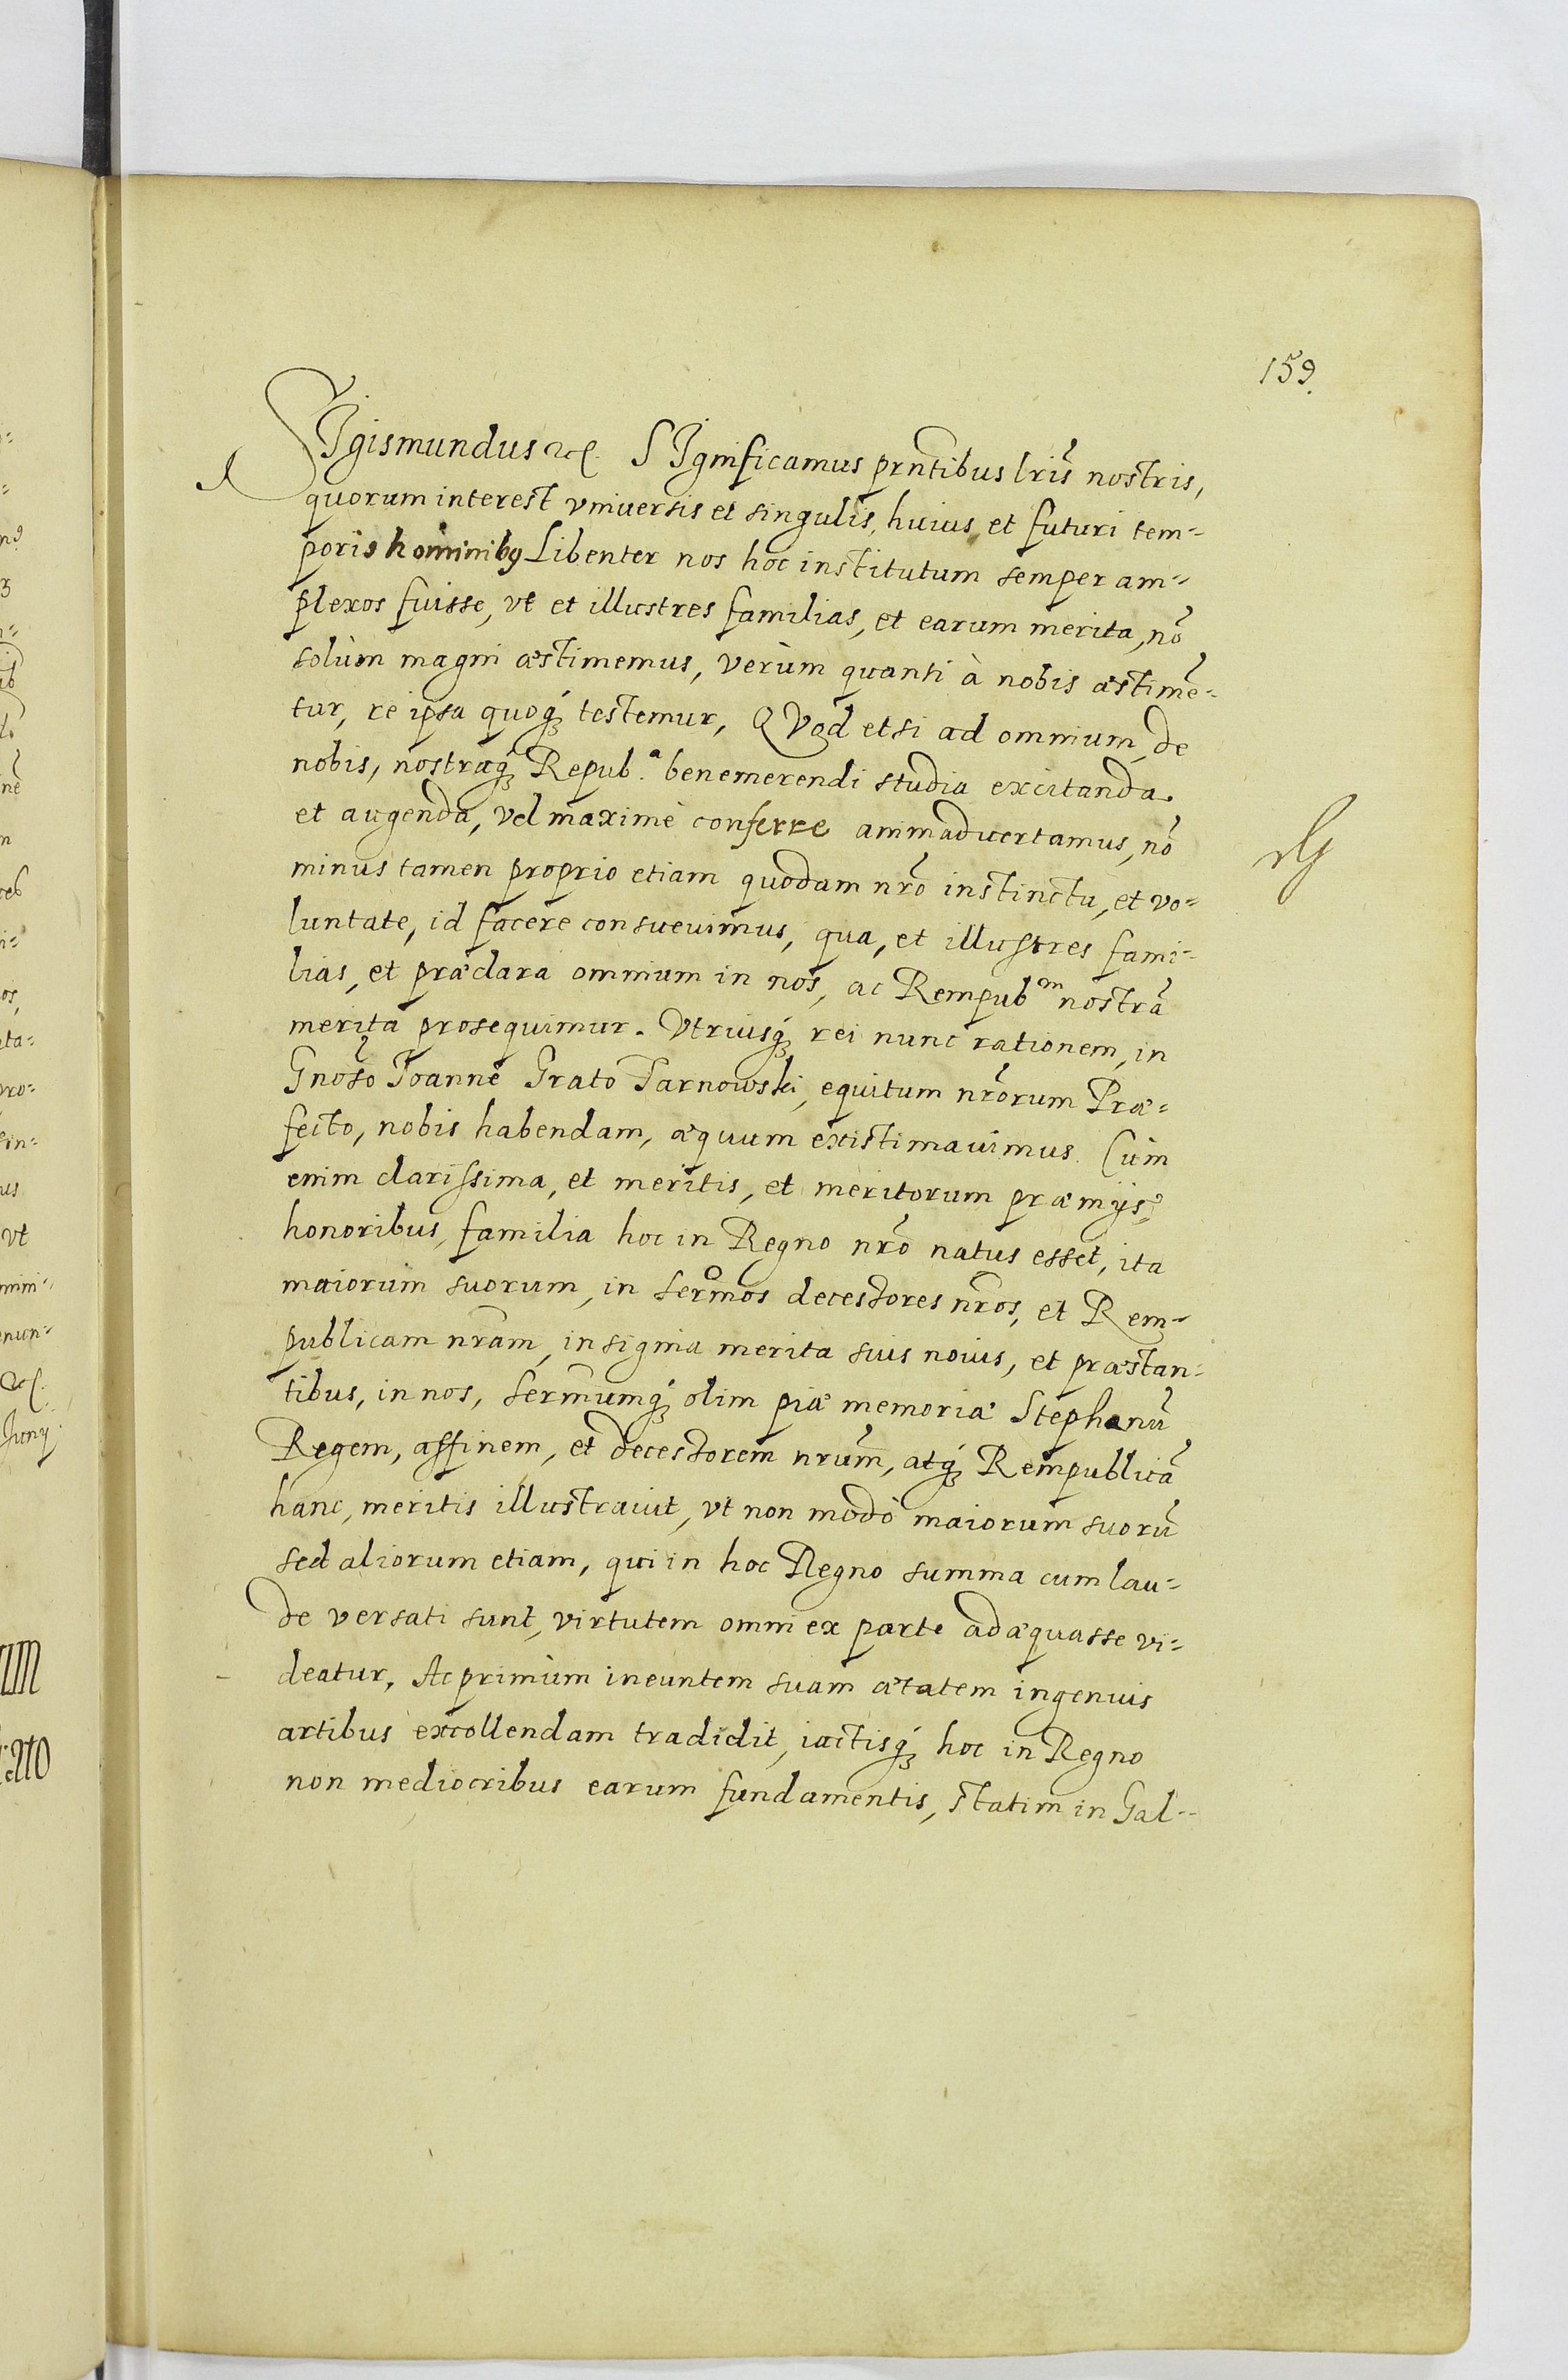 159.
SIgismundus etc. SIgnificamus prñtibus lrĩs nostris,
quorum interest vniuersis et singulis, huius, et futuri tem=
poris hominibꝰ Libenter nos hoc institutum semper am=
plexos fuisse, vt et illustres familias, et earum merita, nõ
solùm magni æstimemus, verùm quanti à nobis æstimẽ=
tur, re ipsa quoqꝫ testemur, QVod etsi ad omnium, de
nobis, nostraqꝫ Repub.ᵃ benemerendi studia excitanda
et augenda, vel maximè conferre animaduertamus, nõ
minus tamen proprio etiam quodam nrõ instinctu, et vo=
luntate, id facere consueuimus, qua, et illustres fami=
lias, et præclara omnium in nos, ac Rempubᵐ nostrã
merita prosequimur. Vtriusqꝫ rei nunc rationem, in
Gnoso Ioanne Grato Tarnowski, equitum nrõrum Præ=
fecto, nobis habendam, æquum existimauimus. Cùm
enim clarissima, et meritis, et meritorum præmijs,
honoribus, familia hoc in Regno nrõ natus esset, ita
maiorum suorum, in Sermos decessores nros, et Rem=
publicam nram, insignia merita suis nouis, et præstan=
tibus, in nos, Sermumqꝫ olim piæ memoriæ Stephanũ
Regem, affinem, et decessorem nrum, atqꝫ Rempublicã
hanc, meritis illustrauit, vt non modò maiorum suorũ
sed aliorum etiam, qui in hoc Regno summa cum lau=
de versati sunt, virtutem omni ex parte adæquasse vi=
deatur, Ac primùm ineuntem suam ætatem ingenuis
artibus excollendam tradidit, iactisqꝫ hoc in Regno
non mediocribus earum fundamentis, statim in Gal=